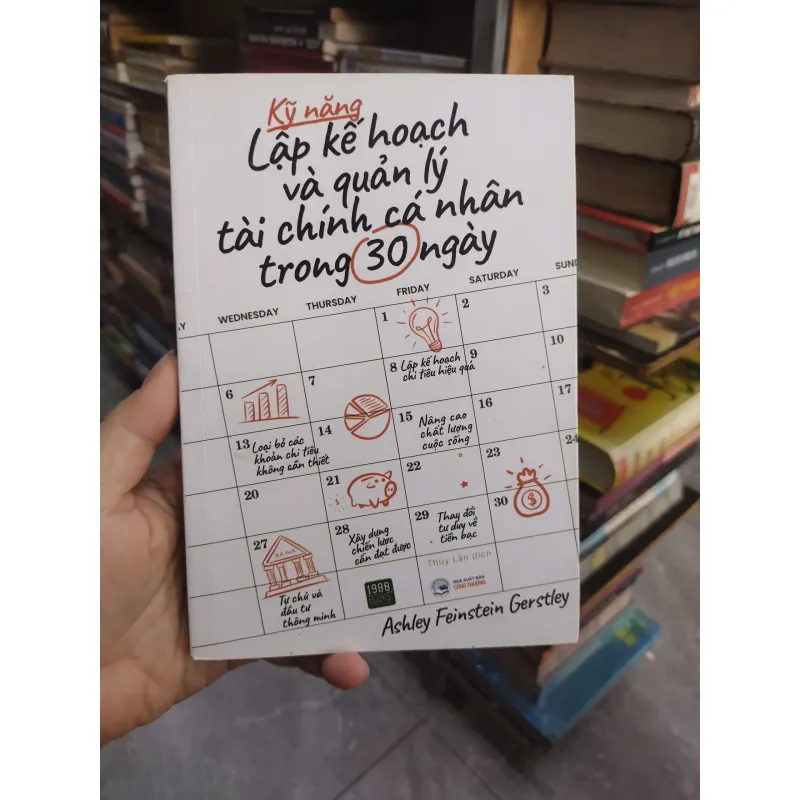 Kỹ năng
Lập kế hoạch
và quản lý
tài chính cá nhân
trong 30 ngày
WEDNESDAY
THURSDAY
FRIDAY
SATURDAY
1
2
3
6
7
8 Lập kế hoạch
chi tiêu hiệu quả
9
10
13 Loại bỏ các
khoản chi tiêu
không cần thiết
14
15 Nâng cao
chất lượng
cuộc sống
16
17
20
21
22
23
24
27
BANK
Tự chủ và
đầu tư
thông minh
28
Xây dựng
chiến lược
cần đạt được
29 Thay đổi
tư duy về
tiền bạc
30
$
1988
BOOKS
Thúy Lân dịch
NHÀ XUẤT BẢN
CÔNG THƯƠNG
Ashley Feinstein Gerstley